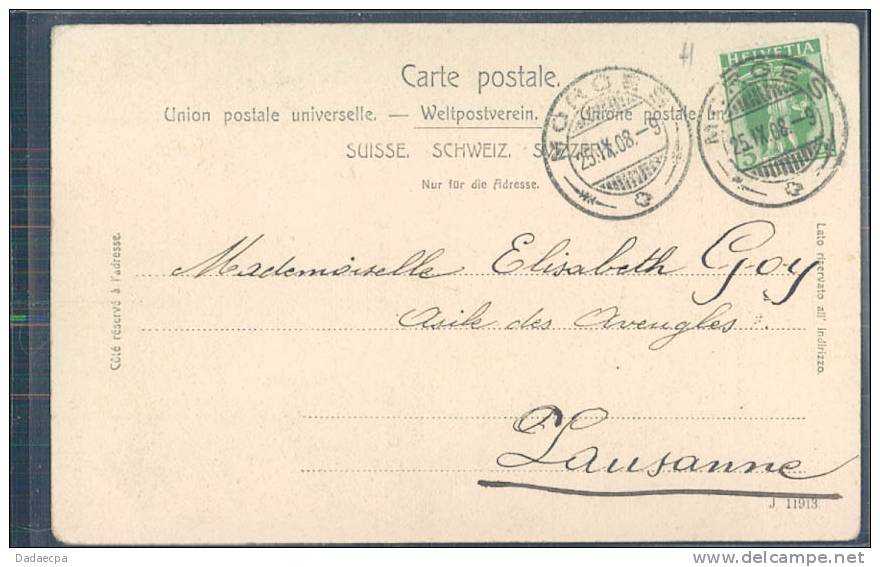 HELVETIA
Carte postale.
Union postale universelle. — Weltpostverein. — Unione postale un
SUISSE. SCHWEIZ. SVIZZERA.
Nur für die Adresse.
MORGES
25.IX.08.–9
MORGES
25.IX.08.–9
5
Côté réservé à l'adresse.
Lato riservato all' indirizzo.
Mademoiselle Elisabeth Goy
Asile des Aveugles.
Lausanne
J. 11913
Dadaecpa
delcampe.net